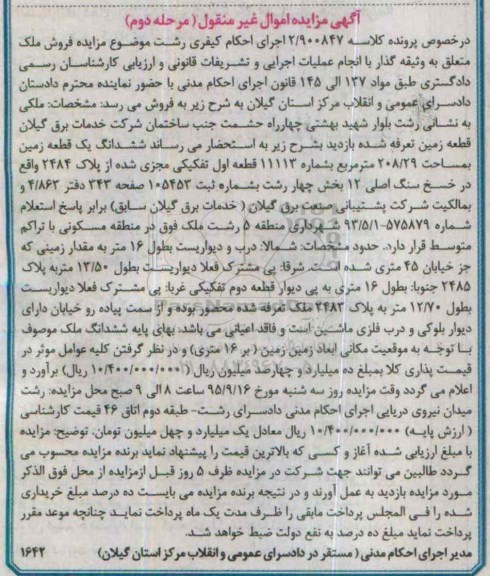 آگهی مزایده اموال غیر منقول ( مرحله دوم)
درخصوص پرونده کلاسه ۲/۹۰۰۸۴۷ اجرای احکام کیفری رشت موضوع مزایده فروش ملک
متعلق به وثیقه گذار با انجام عملیات اجرایی و تشریفات قانونی و ارزیابی کارشناسان رسمی
دادگستری طبق مواد ۱۳۷ الی ۱۴۵ قانون اجرای احکام مدنی با حضور نماینده محترم دادستان
دادسرای عمومی و انقلاب مرکز استان گیلان به شرح زیر به فروش می رسد: مشخصات: ملکی
به نشانی رشت بلوار شهید بهشتی چهارراه حشمت جنب ساختمان شرکت خدمات برق گیلان
قطعه زمین تعرفه شده بازدید بشرح زیر به استحضار می رساند ششدانگ یک قطعه زمین
بمساحت ۲۰۸/۲۹ مترمربع بشماره ۱۱۱۱۳ قطعه اول تفکیکی مجزی شده از پلاک ۲۴۸۴ واقع
در خسخ سنگ اصلی ۱۲ بخش چهار رشت بشماره ثبت ۱۰۵۴۵۳ صفحه ۳۴۳ دفتر ۴/۸۶۳ و
بمالکیت شرکت پشتیبانی صنعت برق گیلان ( خدمات برق گیلان سابق) برابر پاسخ استعلام
شماره ۵۷۵۸۷۹-۹۳/۵/۱ شهرداری منطقه ۵ رشت ملک فوق در منطقه مسکونی با تراکم
متوسط قرار دارد. حدود مشخصات: شمالا: درب و دیواریست بطول ۱۶ متر به مقدار زمینی که
جز خیابان ۴۵ متری شده است. شرقا: پی مشترک فعلا دیواریست بطول ۱۳/۵۰ متربه پلاک
۲۴۸۵ جنوبا: بطول ۱۶ متری به پی دیوار قطعه دوم تفکیکی غربا: پی مشترک فعلا دیواریست
بطول ۱۲/۷۰ متر به پلاک ۲۴۸۳ ملک تعرفه شده محصور بوده و از سمت پیاده رو خیابان دارای
دیوار بلوکی و درب فلزی ماشین است و فاقد اعیانی می باشد. بهای پایه ششدانگ ملک موصوف
با توجه به موقعیت مکانی ابعاد زمین زمین ( بر ۱۶ متری) و در نظر گرفتن کلیه عوامل موثر در
قیمت پذاری کلا بمبلغ ده میلیارد و چهارصد میلیون ریال (۱۰/۴۰۰/۰۰۰/۰۰۰ ریال) برآورد و
اعلام می گردد وقت مزایده روز سه شنبه مورخ ۹۵/۹/۱۶ ساعت ۸ الی ۹ صبح محل مزایده: رشت
میدان نیروی دریایی اجرای احکام مدنی دادسرای رشت- طبقه دوم اتاق ۴۶ قیمت کارشناسی
( ارزش پایه) ۱۰/۴۰۰/۰۰۰/۰۰۰ ریال معادل یک میلیارد و چهل میلیون تومان. توضیح: مزایده
با مبلغ ارزیابی شده آغاز و کسی که بالاترین قیمت را پیشنهاد نماید برنده مزایده محسوب می
گردد طالبین می توانند جهت شرکت در مزایده ظرف ۵ روز قبل ازمزایده از محل فوق الذکر
مورد مزایده بازدید به عمل آورند و در نتیجه برنده مزایده می بایست ده درصد مبلغ خریداری
شده را فی المجلس پرداخت مابقی را ظرف مدت یک ماه پرداخت نماید چنانچه موعد مقرر
پرداخت نماید مبلغ ده درصد به نفع دولت ضبط خواهد شد.
مدیر اجرای احکام مدنی ( مستقر در دادسرای عمومی و انقلاب مرکز استان گیلان) ۱۶۴۲